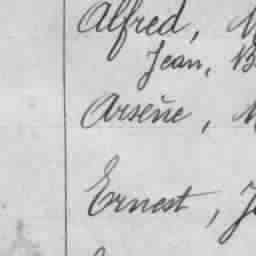 Alfred, M
Jean, B
Arsène, M
Ernest, J